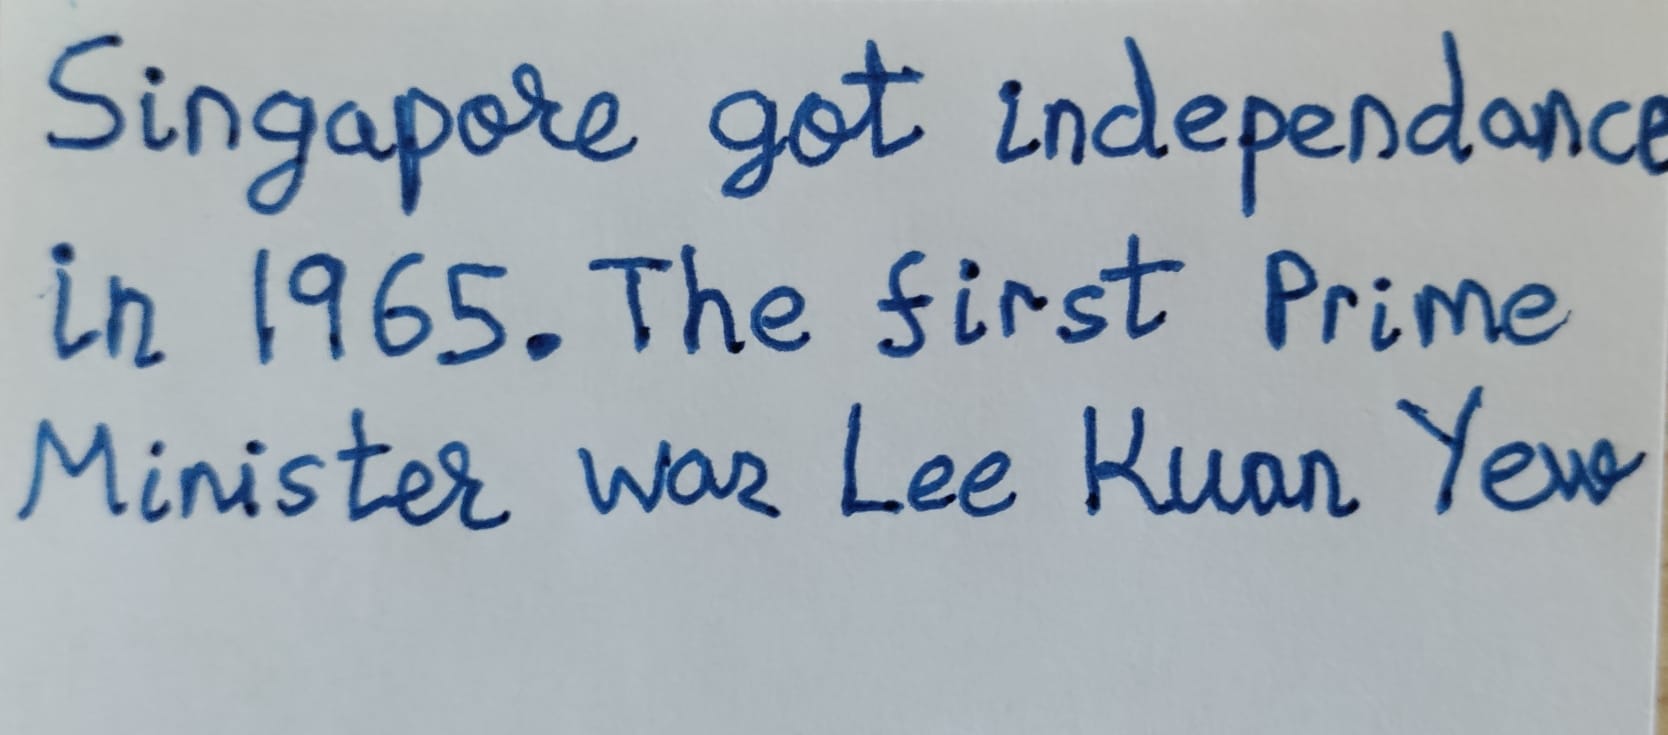 Singapore got independance
in 1965. The first Prime
Minister was Lee Kuan Yew